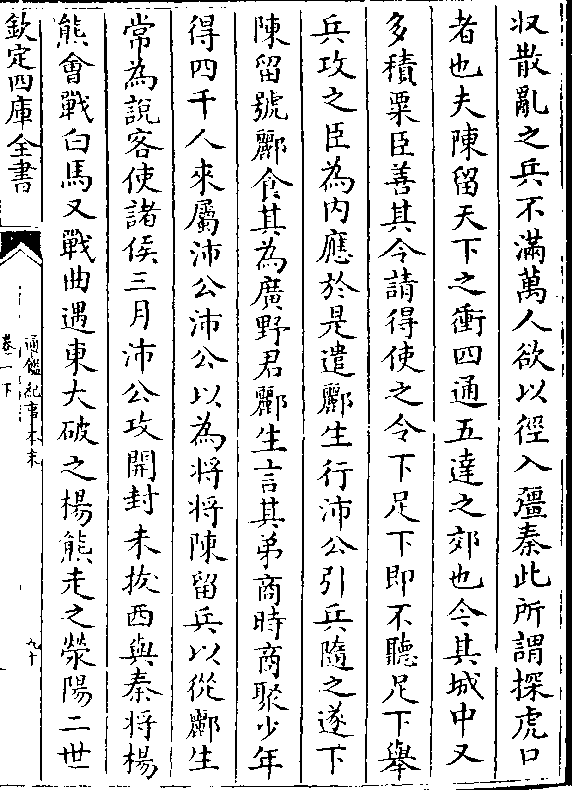 収散亂之兵不滿萬人欲以徑入彊秦此所謂探虎口
者也夫陳留天下之衝四通五達之郊也令其城中又
多積粟臣善其令請得使之令下足下即不聽足下舉
兵攻之臣為内應於是遣酈生行沛公引兵隨之遂下
陳留號酈食其為廣野君酈生言其弟商時商聚少年
得四千人來屬沛公沛公以為將將陳留兵以從酈生
常為說客使諸侯三月沛公攻開封未拔西與秦將楊
熊會戰白馬又戰曲遇東大破之楊熊走之滎陽二世
欽定四庫全書
通鑑紀事本末
卷一下
九十